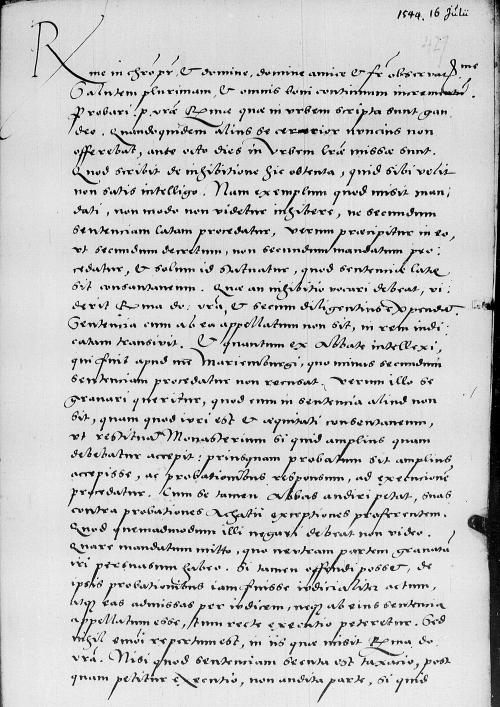 1544. 16 Julii
427
Rme in chro pr, & domine, domine amice & fr observatt me
Salutem plurimam, & omnis boni continuum incrementū.
Probari p. vrae Rmae quae in urbem scripta sunt gau
deo. Quandoquidem alius se certior nuncius non
offerebat, ante octo dies in Urbem lrae missae sunt.
Quod scribit de inhibitione hic obtenta, quid sibi velit
non satis intelligo. Nam exemplum quod misit man,
dati, non modo non videtur inhibere, ne secundum
sententiam latam procedatur, verum praecipitur in eo,
ut secundum decretum, non secundum mandatum pro,
cedatur, & solum id statuatur, quod sententiae latae
sit consentaneum. Quae an inhibitio vocari debeat, vi,
derit Rma do. vra, & secum diligentius expendat.
Sententia cum ab ea appellatum non sit, in rem iudi,
catam transivit. & quantum ex Abbate intellexi,
qui fuit apud me Mariemburgi, quo minus secundum
sententiam procedatur non recusat. Verum illo se
gravari queritur, quod cum in sententia aliud non
sit, quam quod iuri est & aequitati consentaneum,
ut restituat Monasterium si quid amplius quam
debebatur accepit: priusquam probatum sit amplius
accepisse, ac probationibus responsum, ad executionē
procedatur. Cum se tamen Abbas audiri petat, suas
contra probationes Achatii exceptiones proferentem.
Quod quemadmodum illi negari debeat non video.
Quare mandatum mitto, quo neutram partem gravatā
iri persuasum habeo. Si tamen ostendi posset, de
ipsis probationibus iam fuisse iudicialiter actum,
atque eas admissas per iudicem, neque ab eius sententia
appellatum esse, tum recte executio peteretur. Sed
nihil eiusmodi repertum est, in iis quae misit Rma do.
vra. Nisi quod sententiam secuta est taxatio, post
quam petitur executio, non audita parte, si quid